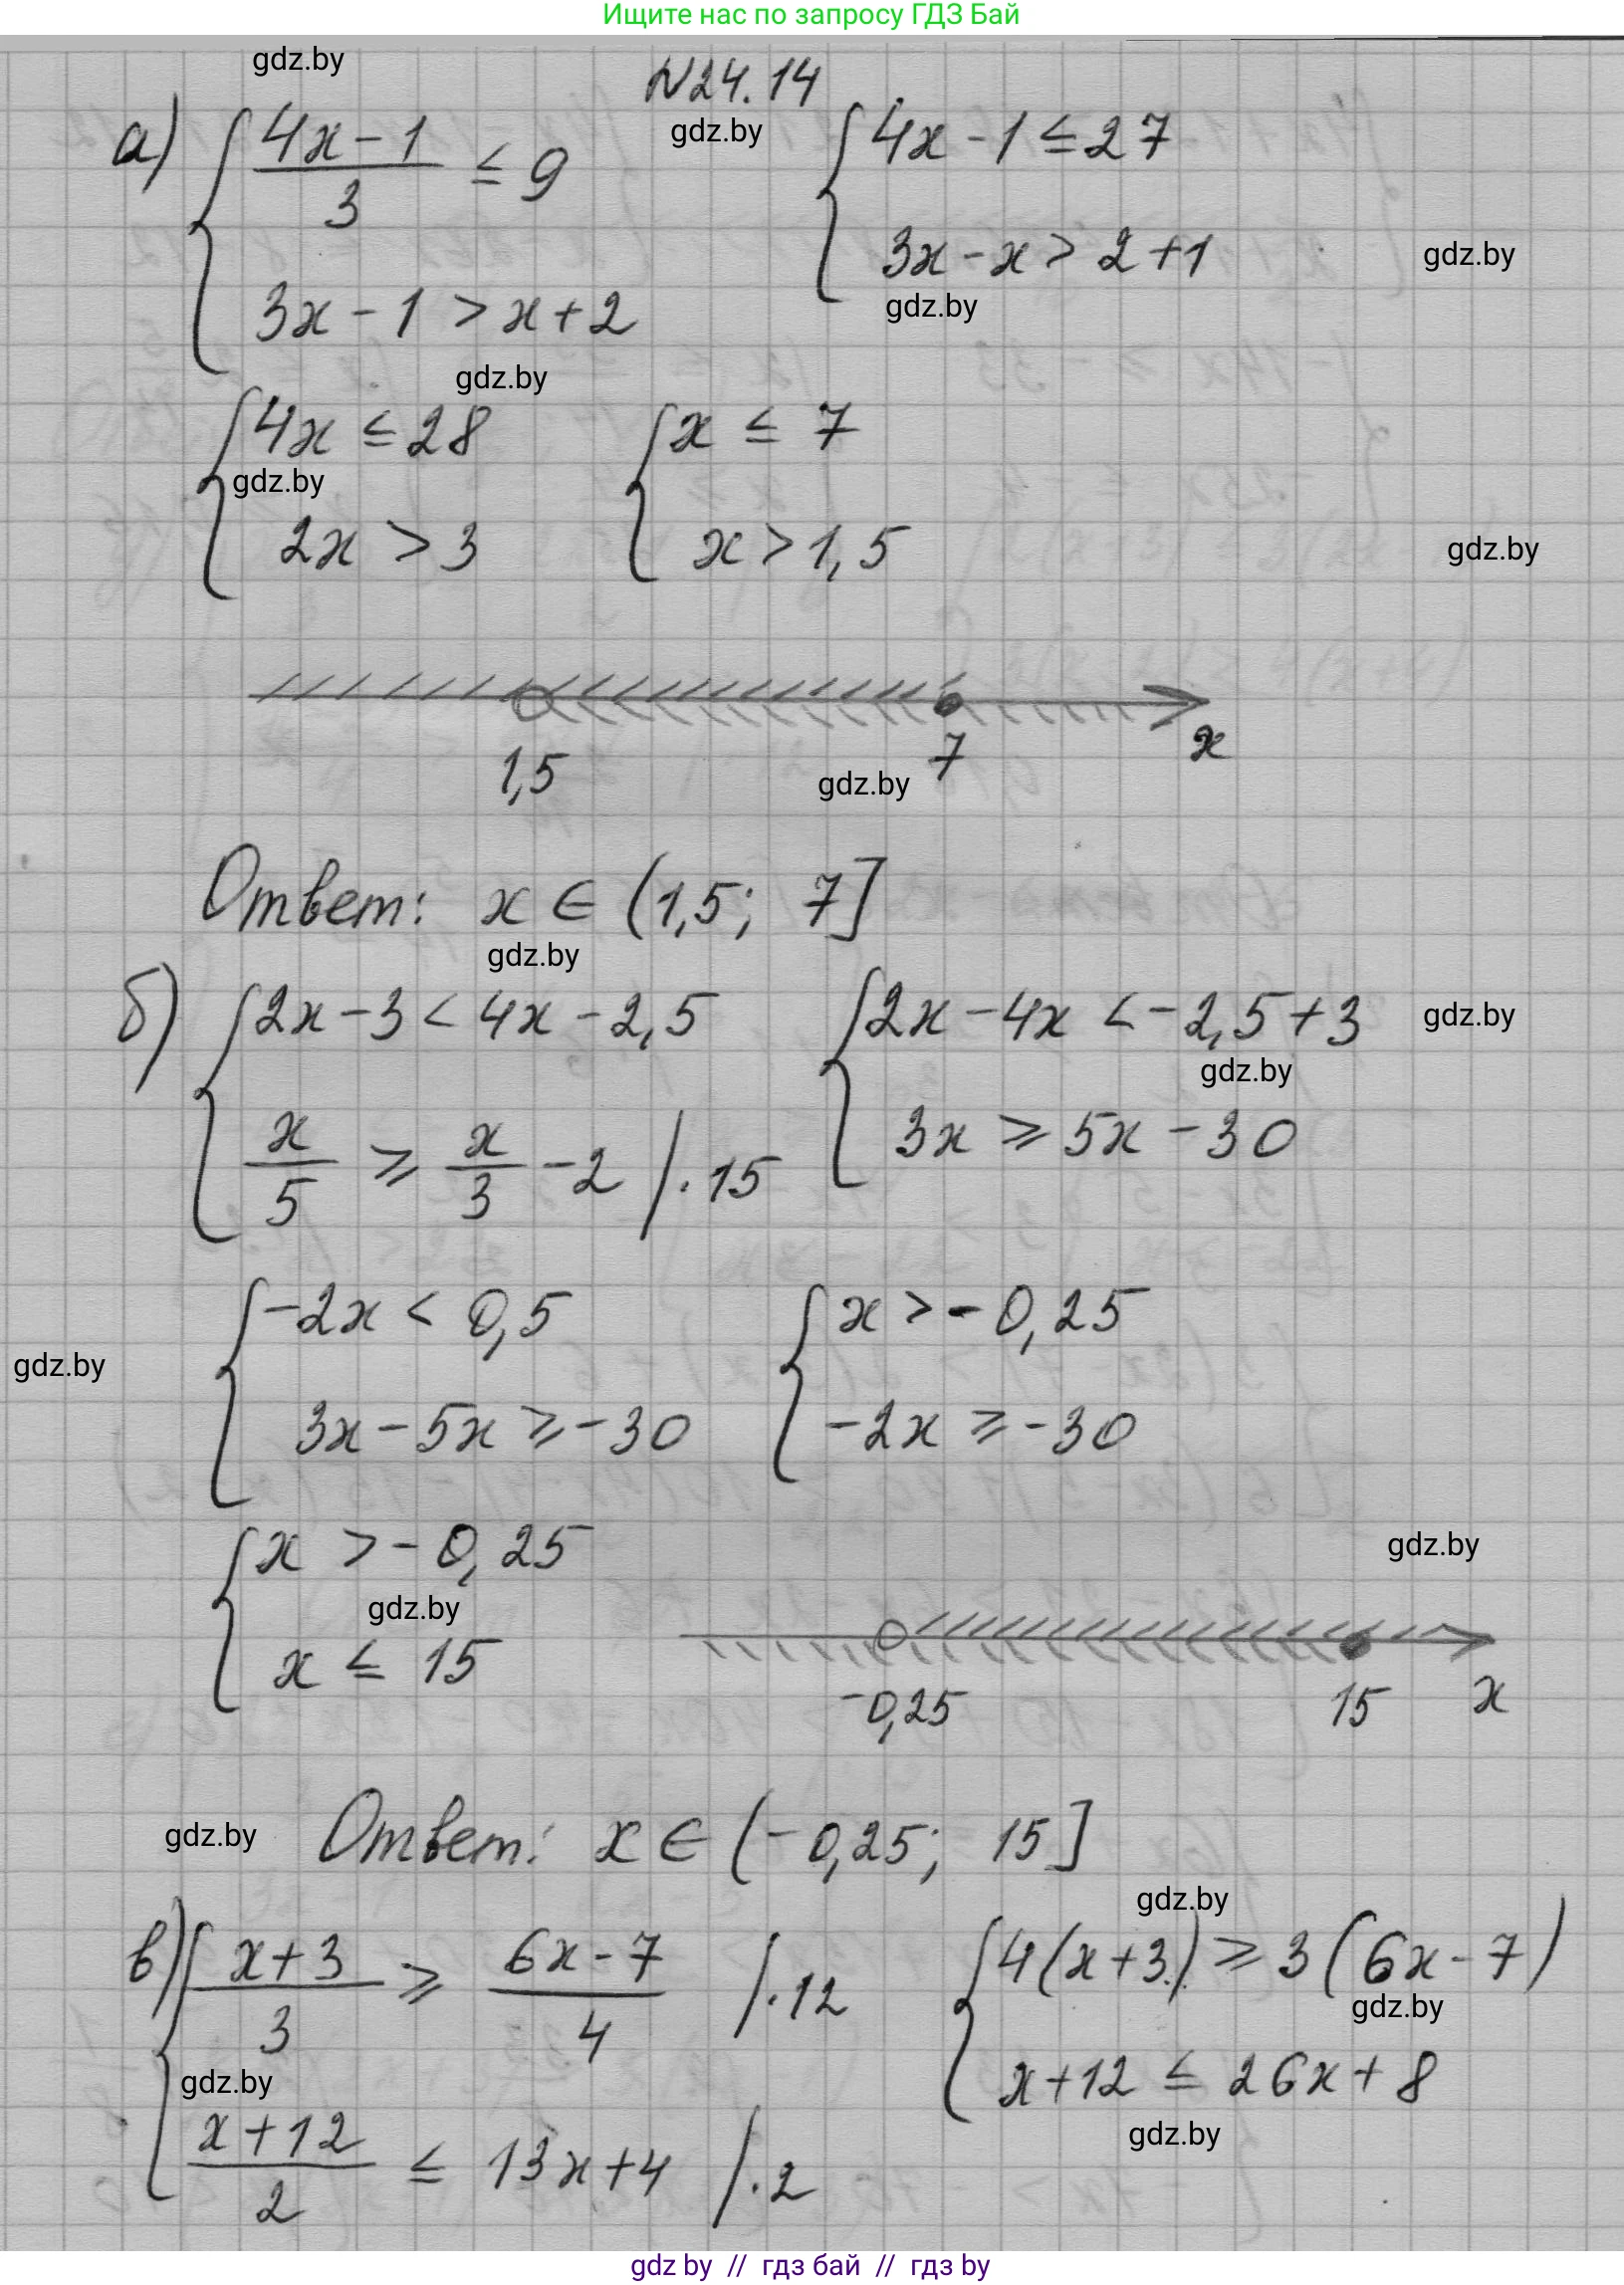 Ищите нас по запросу ГДЗ Бай
gdz.by
N24.14
gdz.by
а) { (4x - 1)/3 ≤ 9
3x - 1 > x + 2
{ 4x - 1 ≤ 27
3x - x > 2 + 1
gdz.by
gdz.by
gdz.by
{ 4x ≤ 28
2x > 3
gdz.by
{ x ≤ 7
x > 1,5
gdz.by
1,5 7 x
gdz.by
Ответ: x ∈ (1,5; 7]
gdz.by
б) { 2x - 3 < 4x - 2,5
x/5 ≥ x/3 - 2 /·15
{ 2x - 4x < -2,5 + 3
3x ≥ 5x - 30
gdz.by
gdz.by
{ -2x < 0,5
3x - 5x ≥ -30
gdz.by
{ x > -0,25
-2x ≥ -30
{ x > -0,25
x ≤ 15
gdz.by
gdz.by
-0,25 15 x
gdz.by
Ответ: x ∈ (-0,25; 15]
gdz.by
в) { (x + 3)/3 ≥ (6x - 7)/4 /·12
(x + 12)/2 ≤ 13x + 4 /·2
gdz.by
{ 4(x + 3) ≥ 3(6x - 7)
x + 12 ≤ 26x + 8
gdz.by
gdz.by
gdz by // гдз бай // гдз by